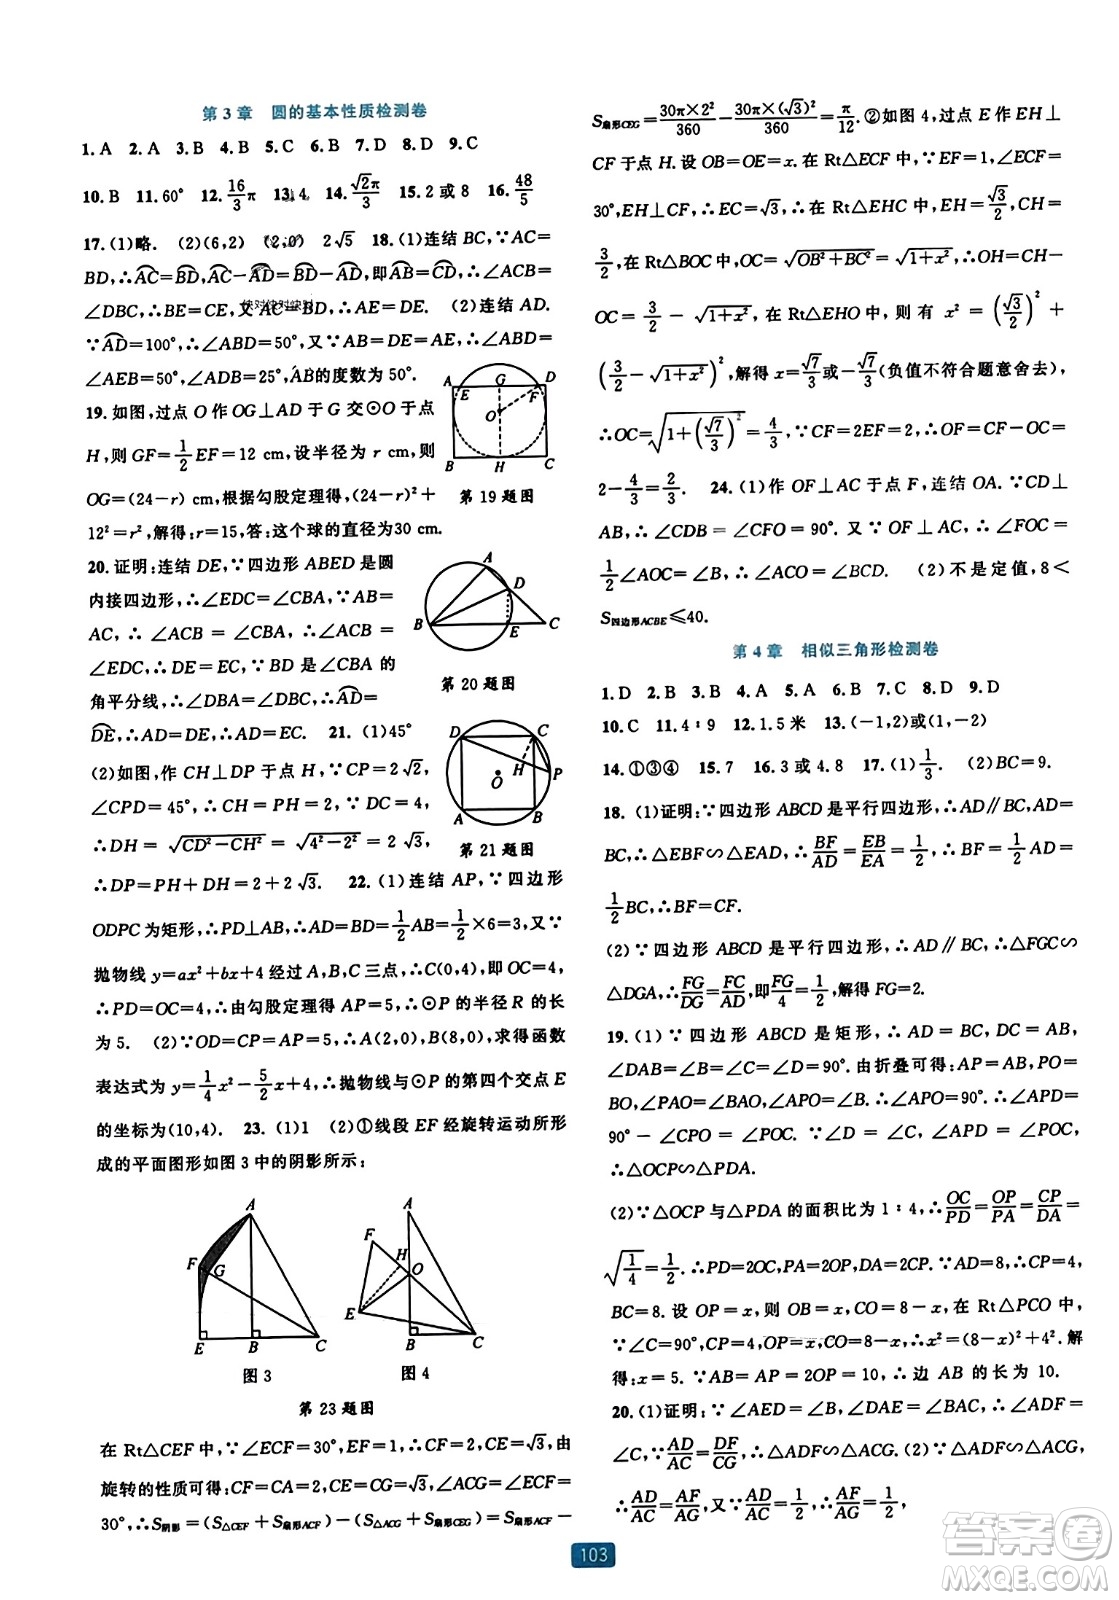 第3章 圆的基本性质检测卷
1.A 2.A 3.B 4.B 5.C 6.B 7.D 8.D 9.C
10.B 11.60° 12.16/3π 13.4 14.√2π/3 15.2或8 16.48/5
17.(1)略. (2)(6,2) (2,0) 2√5 18.(1)连结BC,∵AC=
BD,∴AC=BD,AC-AD=BD-AD,即AB=CD,∴∠ACB=
∠DBC,∴BE=CE,又AC=BD,∴AE=DE. (2)连结AD.
∵AD=100°,∴∠ABD=50°,又∵AB=AE,∴∠ABE=
∠AEB=50°,∴∠ADB=25°,∴AB的度数为50°.
19.如图,过点O作OG⊥AD于G交⊙O于点
H,则GF=1/2EF=12 cm,设半径为r cm,则
OG=(24-r) cm,根据勾股定理得,(24-r)²+
12²=r²,解得:r=15,答:这个球的直径为30 cm.
A G D E F O B H C
第19题图
20.证明:连结DE,∵四边形ABED是圆
内接四边形,∴∠EDC=∠CBA,∵AB=
AC,∴∠ACB=∠CBA,∴∠EDC=
∠ACB,∴DE=EC,∵BD是∠ABC的
角平分线,∴∠ABD=∠CBD,∴AD=
DE,∴AD=DE,∴AD=EC. 21.(1)45°
A D B E C
第20题图
(2)如图,作CH⊥DP于点H,∵CP=2√2,
∠CPD=45°,∴CH=PH=2,∵DC=4,
∴DH=√CD²-CH²=√4²-2²=2√3,
∴DP=PH+DH=2+2√3. 22.(1)连结AP,∵四边形
D C H P O A B
第21题图
ODPC为矩形,∴PD⊥AB,∴AD=BD=1/2AB=1/2×6=3,又∵
抛物线y=ax²+bx+4经过A,B,C三点,∴C(0,4),即OC=4,
∴PD=OC=4,∴由勾股定理得AP=5,∴⊙P的半径R的长
为5. (2)∵OD=CP=AP=5,∴A(2,0),B(8,0),求得函数
表达式为y=1/4x²-5/2x+4,∴抛物线与⊙P的第四个交点E
的坐标为(10,4). 23.(1)1 (2)①线段EF经旋转运动所形
成的平面图形如图3中的阴影所示:
A F G E B C
图3
A F H O E B C
图4
第23题图
在Rt△CEF中,∵∠ECF=30°,EF=1,∴CF=2,CE=√3,由
旋转的性质可得:CF=CA=2,CE=CG=√3,∠ACG=∠ECF=
30°,∴S阴影=(S△CEF+S扇形ACF)-(S△ACG+S扇形CEG)=S扇形ACF-
S扇形CEG=30π×2²/360-30π×(√3)²/360=π/12.②如图4,过点E作EH⊥
CF于点H.设OB=OE=x.在Rt△ECF中,∵EF=1,∠ECF=
30°,EH⊥CF,∴EC=√3,∴在Rt△EHC中,EH=√3/2,CH=
3/2,在Rt△BOC中,OC=√OB²+BC²=√1+x²,∴OH=CH-
OC=3/2-√1+x².在Rt△EHO中,则有x²=(√3/2)²+
(3/2-√1+x²)²,解得x=√7/3或-√7/3(负值不符合题意舍去),
∴OC=√1+(√7/3)²=4/3,∵CF=2EF=2,∴OF=CF-OC=
2-4/3=2/3. 24.(1)作OF⊥AC于点F,连结OA.∵CD⊥
AB,∴∠CDB=∠CFO=90°.又∵OF⊥AC,∴∠FOC=
1/2∠AOC=∠B,∴∠ACO=∠BCD. (2)不是定值,8<
S四边形ACBE≤40.
第4章 相似三角形检测卷
1.D 2.B 3.B 4.A 5.A 6.B 7.C 8.D 9.D
10.C 11.4∶9 12.1.5米 13.(-1,2)或(1,-2)
14.①③④ 15.7 16.3或4.8 17.(1)1/3. (2)BC=9.
18.(1)证明:∵四边形ABCD是平行四边形,∴AD∥BC,AD=
BC,∴△EBF∽△EAD,∴BF/AD=EB/EA=1/2,∴BF=1/2AD=
1/2BC,∴BF=CF.
(2)∵四边形ABCD是平行四边形,∴AD∥BC,∴△FGC∽
△DGA,∴FG/DG=FC/AD,即FG/4=1/2,解得FG=2.
19.(1)∵四边形ABCD是矩形,∴AD=BC,DC=AB,
∠DAB=∠B=∠C=∠D=90°.由折叠可得:AP=AB,PO=
BO,∠PAO=∠BAO,∠APO=∠B,∴∠APO=90°,∴∠APD=
90°-∠CPO=∠POC.∵∠D=∠C,∠APD=∠POC,
∴△OCP∽△PDA.
(2)∵△OCP与△PDA的面积比为1∶4,∴OC/PD=OP/PA=CP/DA=
√1/4=1/2,∴PD=2OC,PA=2OP,DA=2CP.∵AD=8,∴CP=4,
BC=8.设OP=x,则OB=x,CO=8-x,在Rt△PCO中,
∵∠C=90°,CP=4,OP=x,CO=8-x,∴x²=(8-x)²+4².解
得:x=5.∵AB=AP=2OP=10,∴边AB的长为10.
20.(1)证明:∵∠AED=∠B,∠DAE=∠BAC,∴∠ADF=
∠C,∵AD/AC=DF/CG,∴△ADF∽△ACG.(2)∵△ADF∽△ACG,
∴AD/AC=AF/AG,又∵AD/AC=1/2,∴AF/AG=1/2,
103
答案圈
MXQE.COM